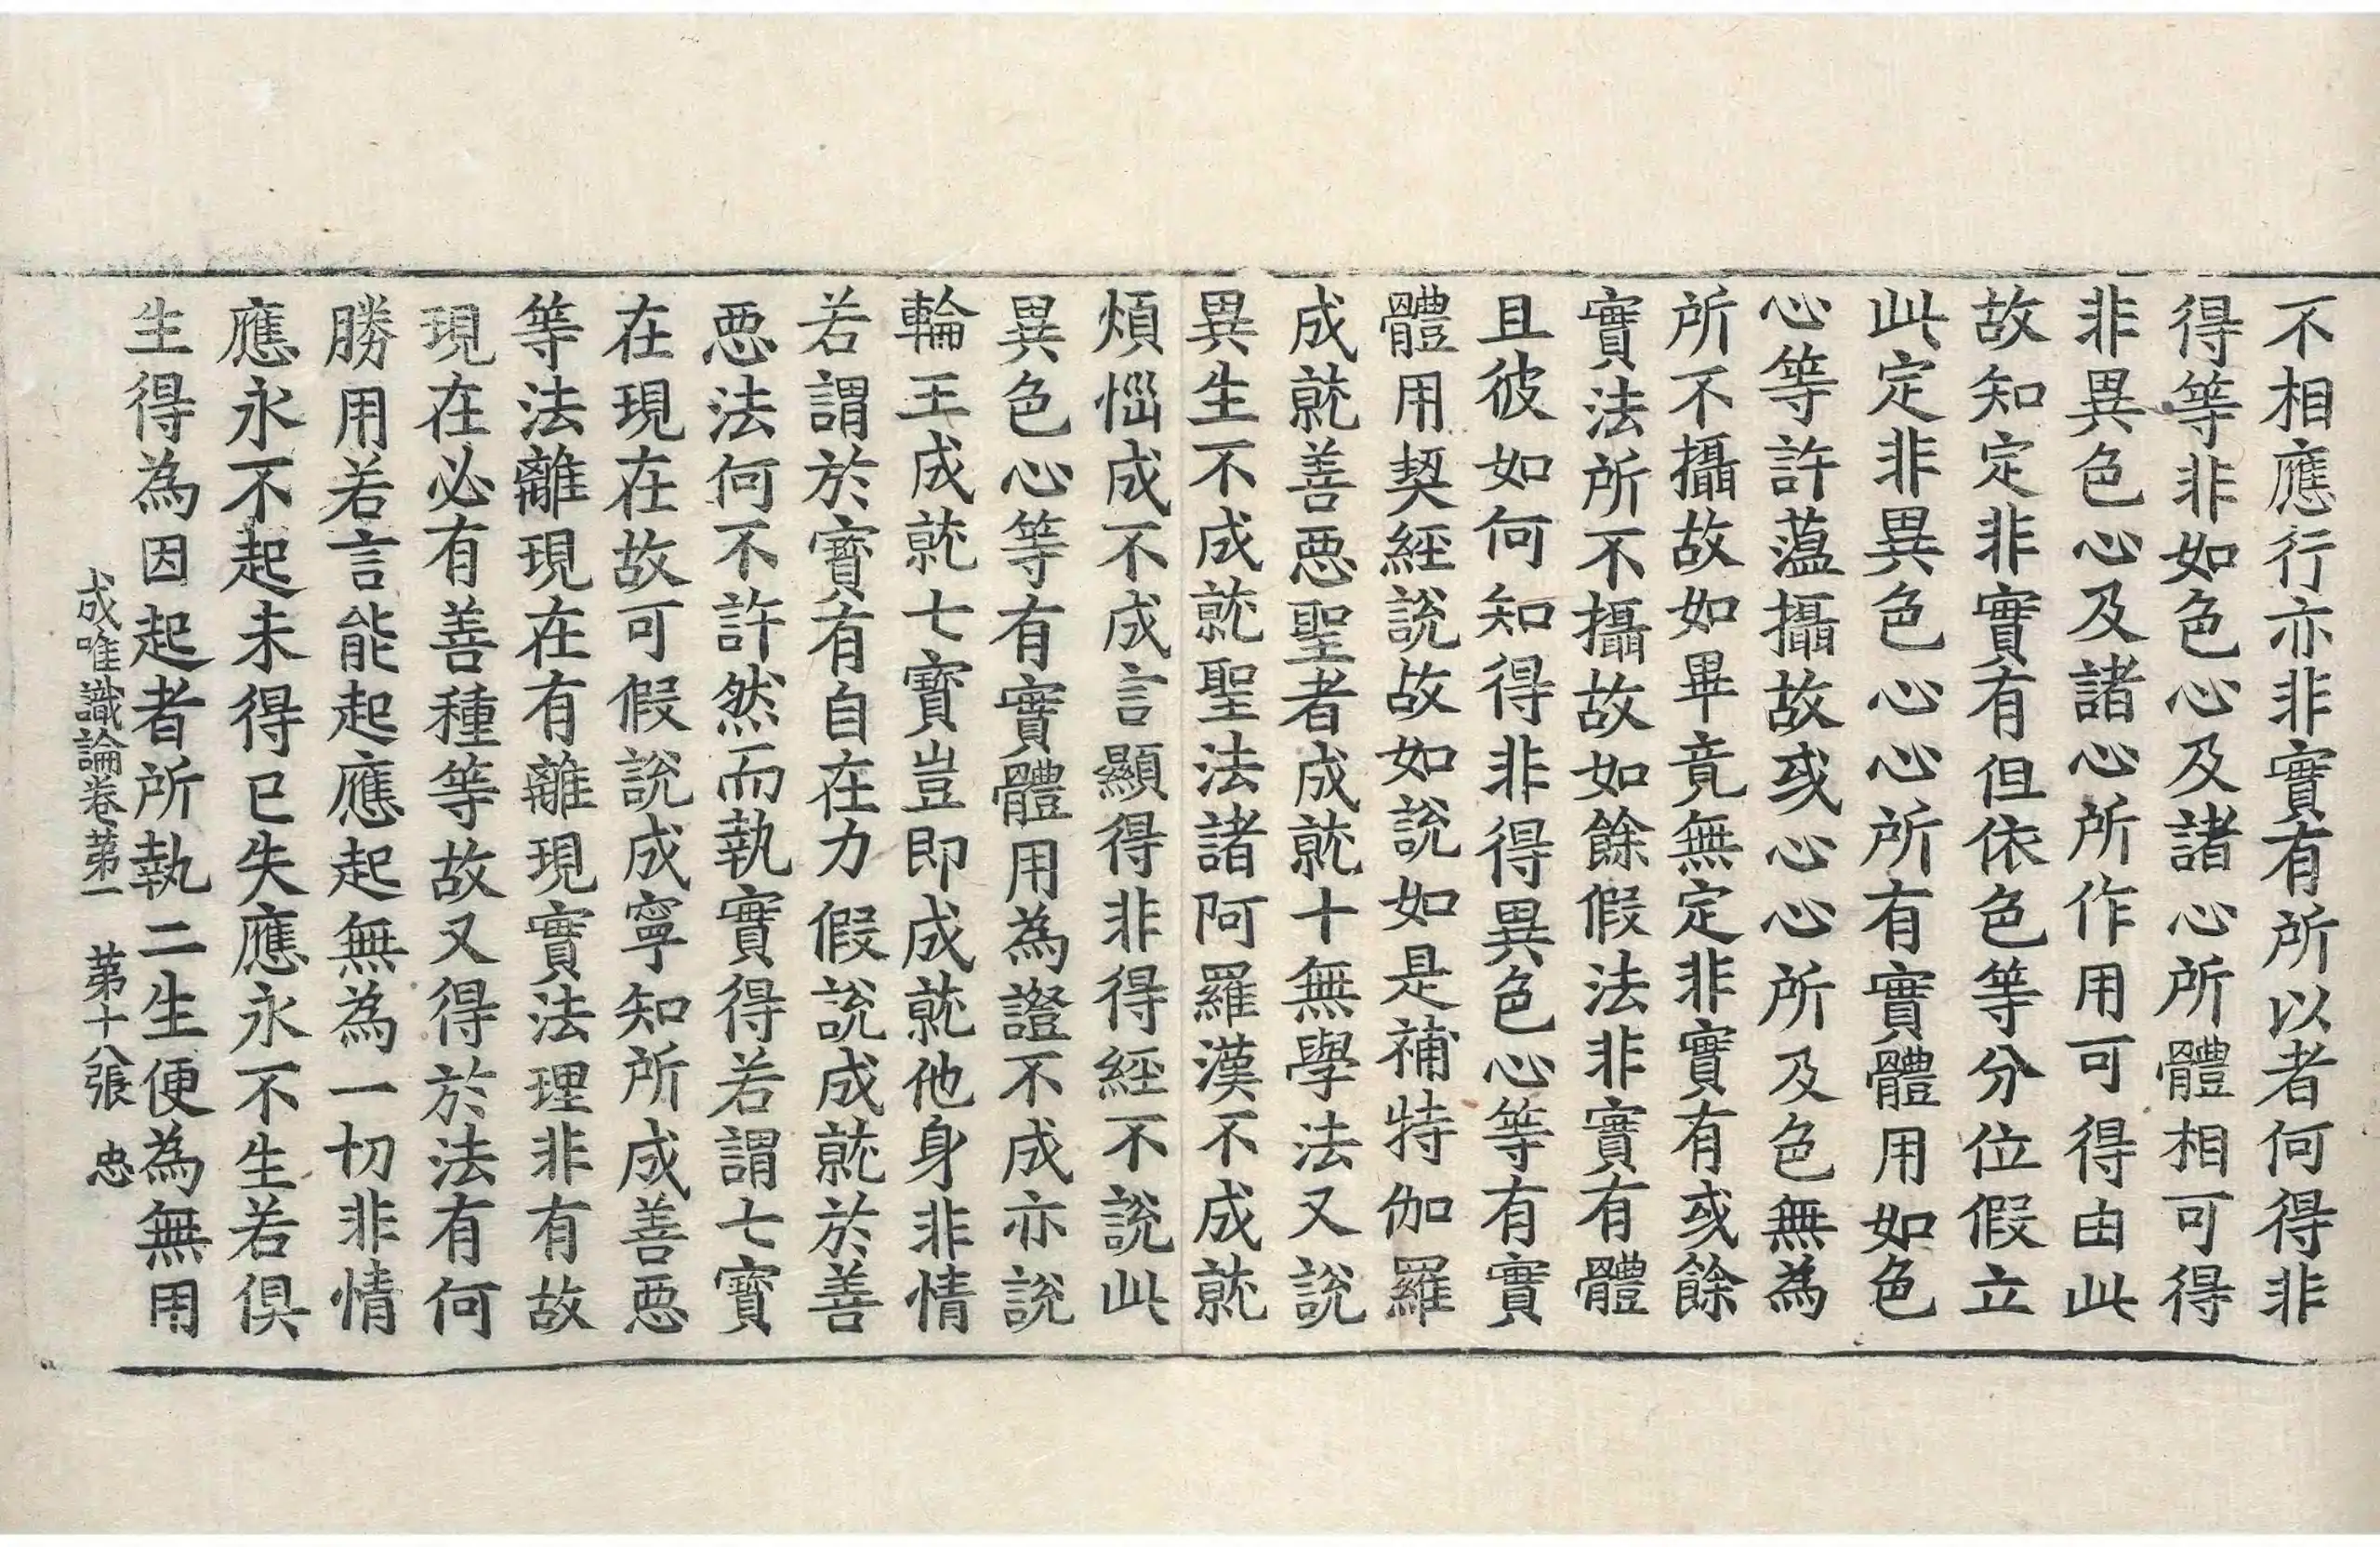 不相應行亦非實有所以者何得非
得等非如色心及諸心所體相可得
非異色心及諸心所作用可得由此
故知定非實有但依色等分位假立
此定非異色心心所有實體用如色
心等許蘊攝故或心心所及色無為
所不攝故如畢竟無定非實有或餘
實法所不攝故如餘假法非實有體
且彼如何知得非得異色心等有實
體用契經說故如說如是補特伽羅
成就善惡聖者成就十無學法又說
異生不成就聖法諸阿羅漢不成就
煩惱成不成言顯得非得經不說此
異色心等有實體用為證不成亦說
輪王成就七寶豈即成就他身非情
若謂於寶有自在力假說成就於善
惡法何不許然而執實得若謂七寶
在現在故可假說成寧知所成善惡
等法離現在有離現實法理非有故
現在必有善種等故又得於法有何
勝用若言能起應起無為一切非情
應永不起未得已失應永不生若俱
生得為因起者所執二生便為無用
成唯識論卷第一 第十八張 忠